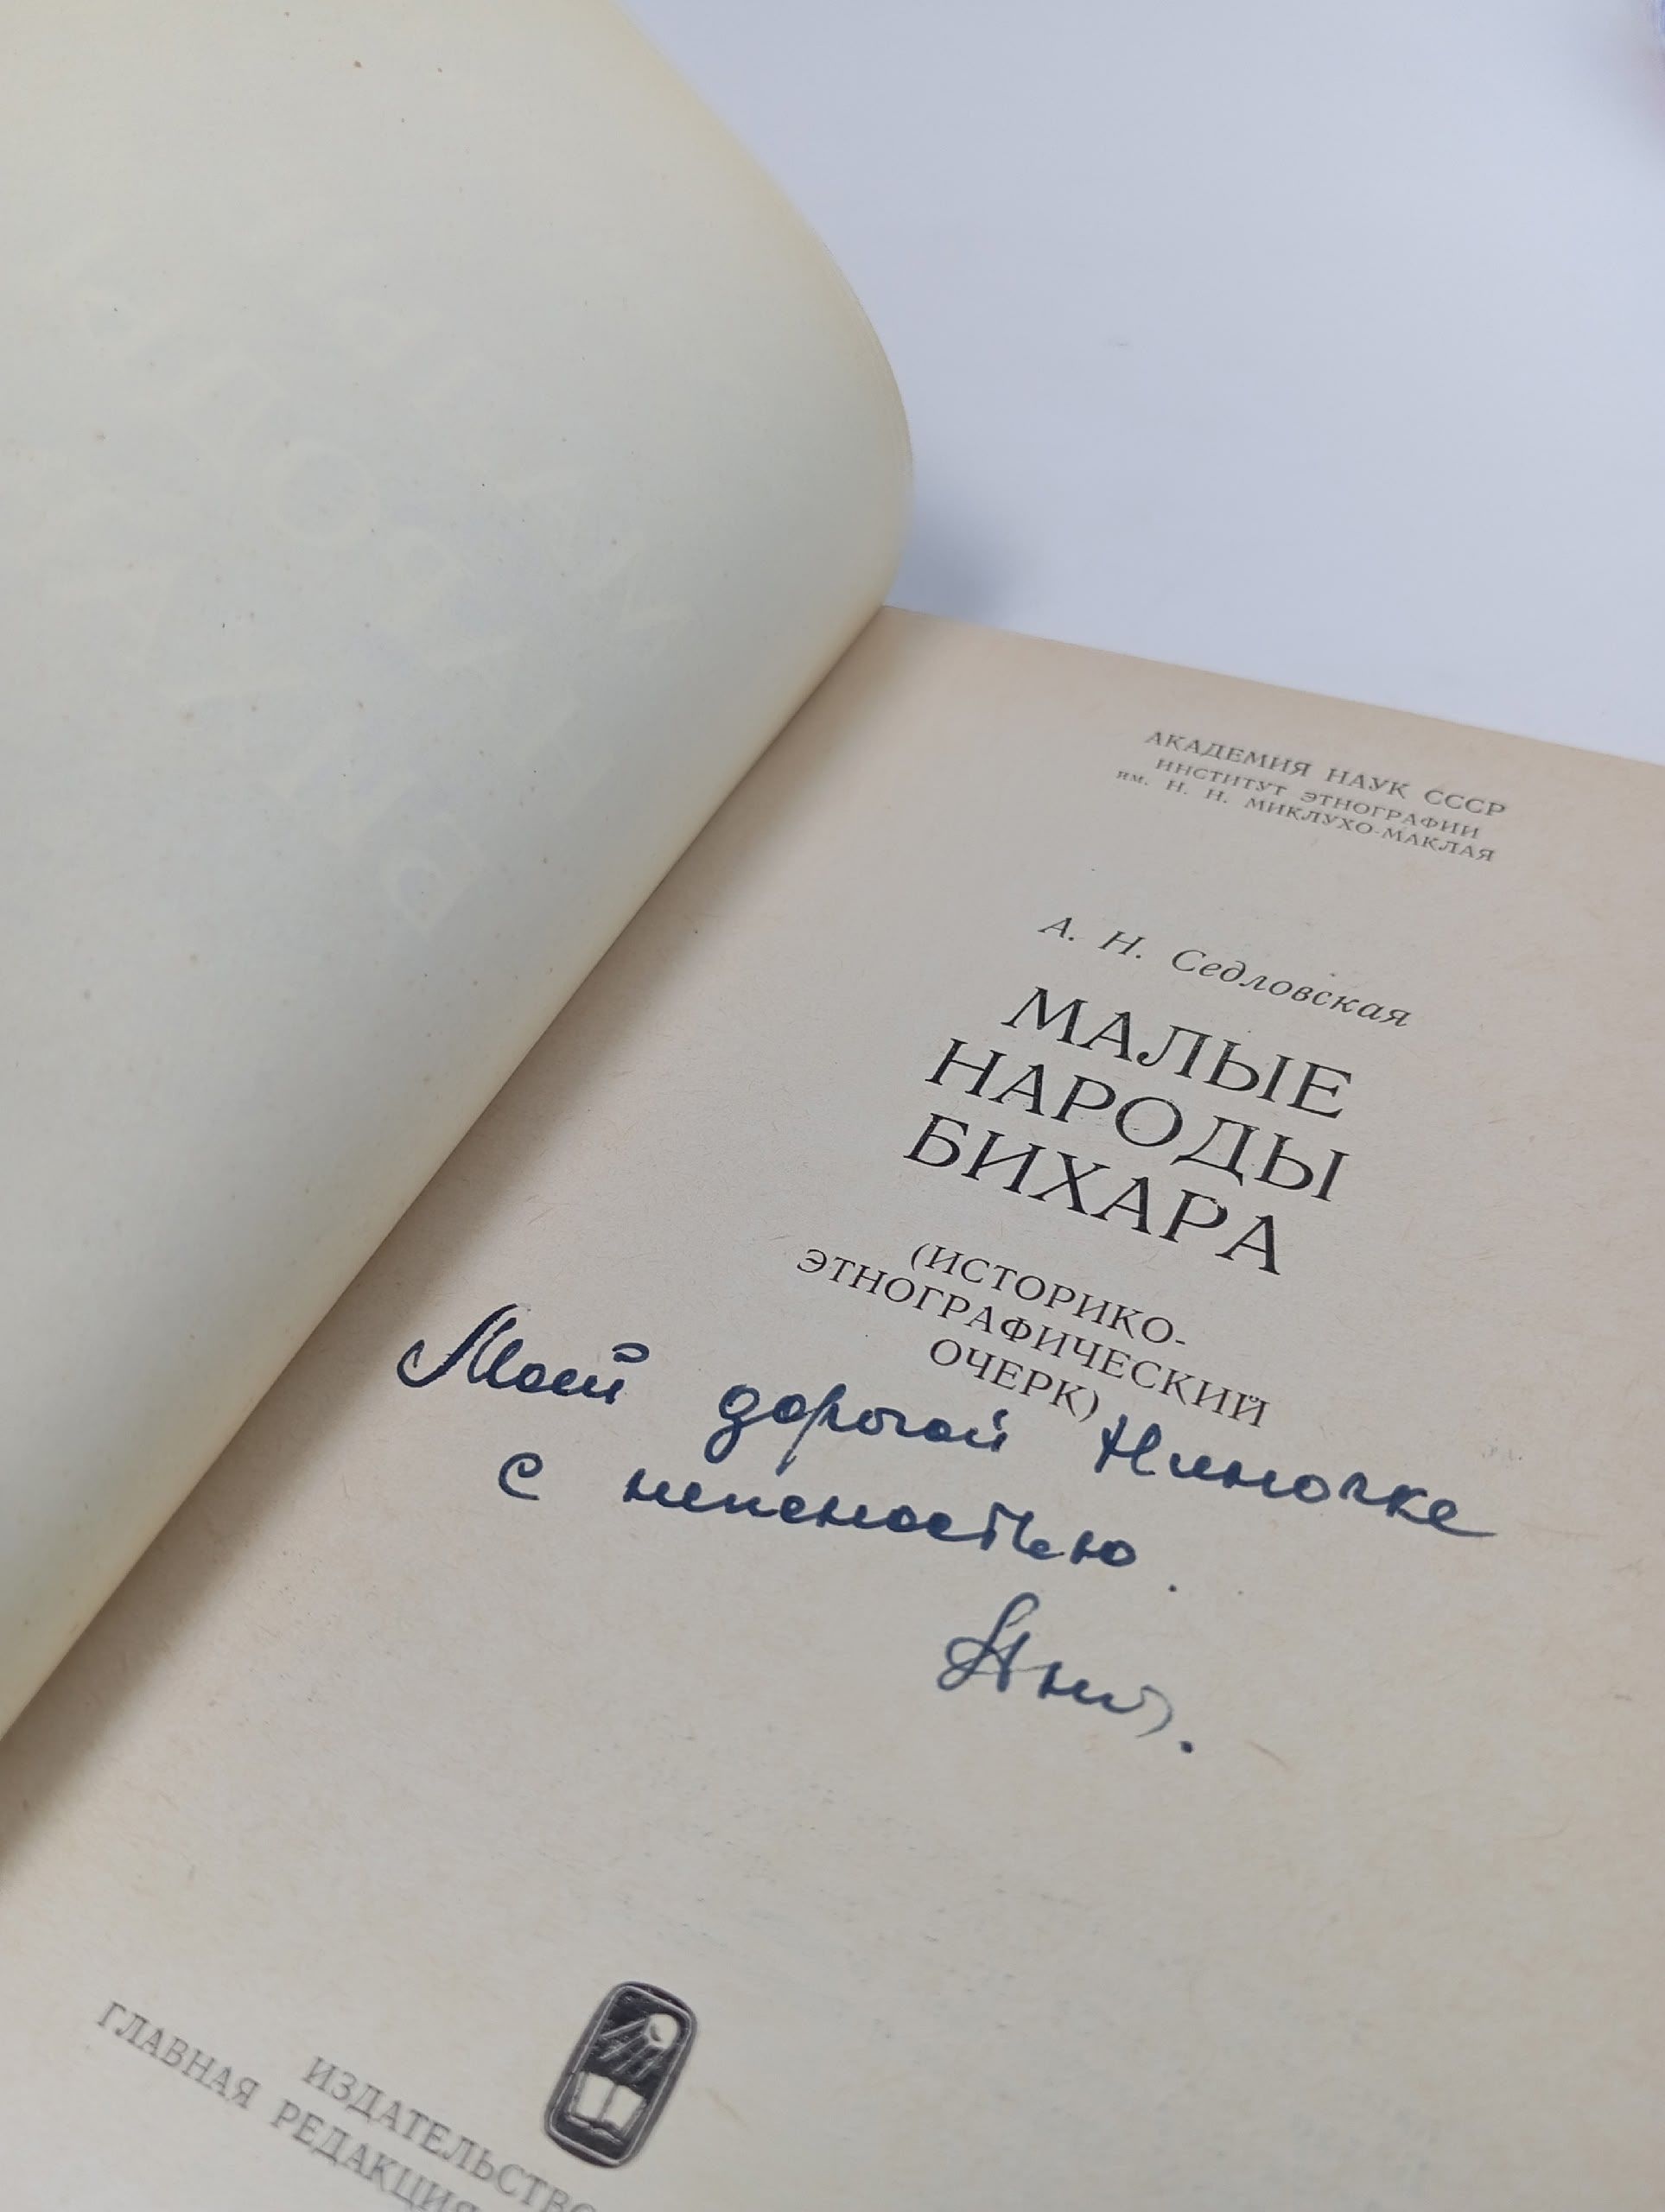 АКАДЕМИЯ НАУК СССР
ИНСТИТУТ ЭТНОГРАФИИ
им. Н. Н. МИКЛУХО-МАКЛАЯ
А. Н. Седловская
МАЛЫЕ
НАРОДЫ
БИХАРА
(ИСТОРИКО-
ЭТНОГРАФИЧЕСКИЙ
ОЧЕРК)
Моей дорогой Ниночке
с нежностью.
ИЗДАТЕЛЬСТВО
ГЛАВНАЯ РЕДАКЦИЯ